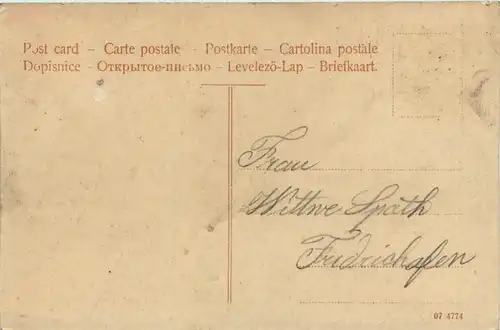 Post card – Carte postale – Postkarte – Cartolina postale
Dopisnice – Открытое-письмо – Levelező-Lap – Briefkaart.
Frau
Wittwe Späth
Fridrichafen
07 4774